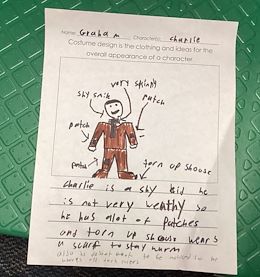 Name: Graham Character: charlie
Costume design is the clothing and ideas for the
overall appearance of a character.
very skinny
shy smile
patch
patch
patch
torn up shoose
Charlie is a shy kid he
is not very welthy so
he has alot of patches
and torn up shoose wears
a scarf to stay warm
also he doesnt want to be noticed so he
wears all dark colors